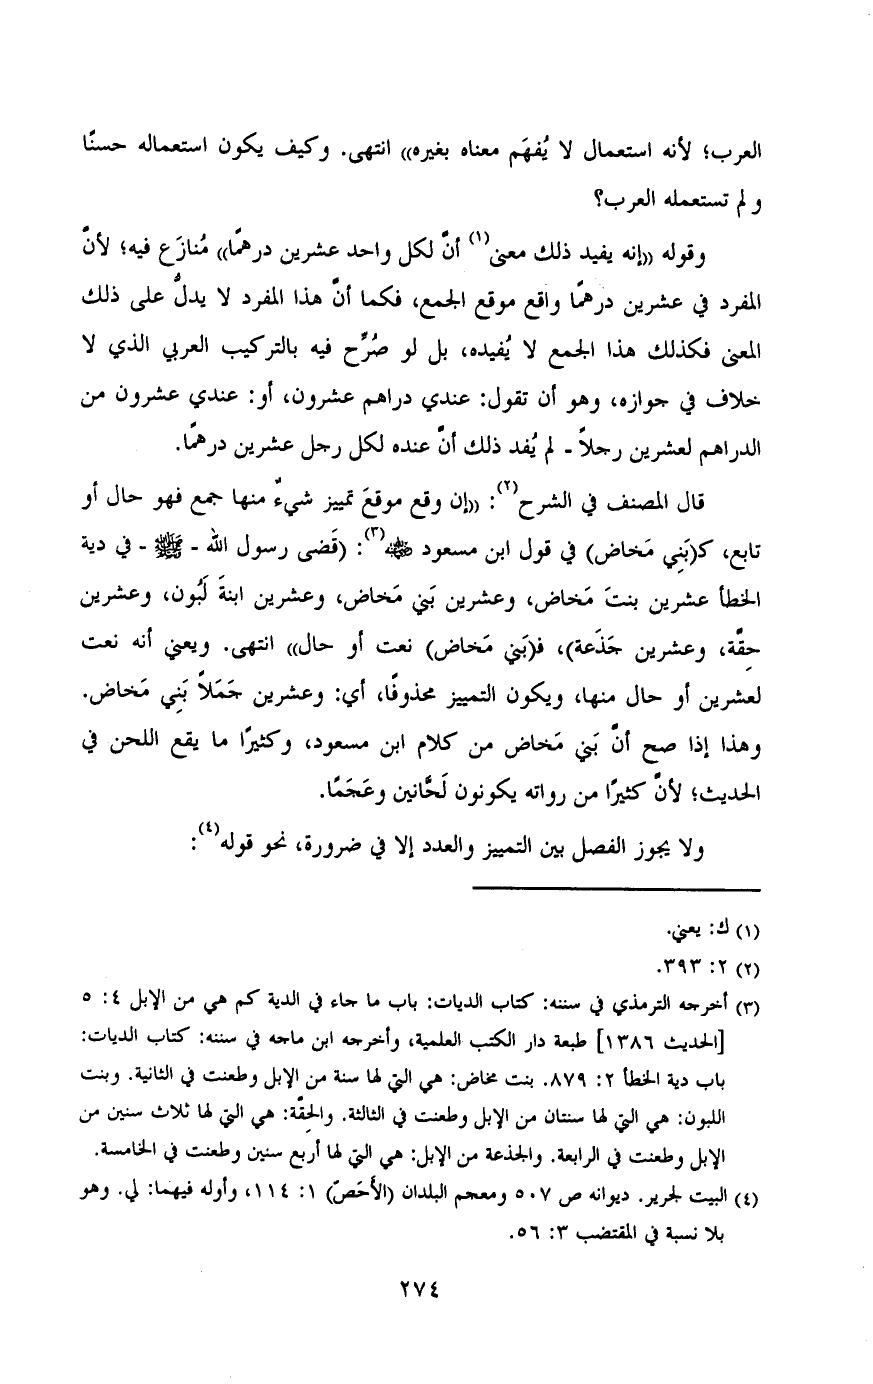 العرب؛ لأنه استعمال لا يُفهَم معناه بغيره)) انتهى. وكيف يكون استعماله حسنًا
ولم تستعمله العرب؟
وقوله ((إنه يفيد ذلك معنى(١) أنَّ لكل واحد عشرين درهمًا)) مُنازَع فيه؛ لأنَّ
المفرد في عشرين درهمًا واقع موقع الجمع، فكما أنَّ هذا المفرد لا يدلُّ على ذلك
المعنى فكذلك هذا الجمع لا يُفيده، بل لو صُرِّح فيه بالتركيب العربي الذي لا
خلاف في جوازه، وهو أن تقول: عندي دراهم عشرون، أو: عندي عشرون من
الدراهم لعشرين رجلاً - لم يُفد ذلك أنَّ عنده لكل رجل عشرين درهمًا.
قال المصنف في الشرح(٢): ((إن وقع موقعَ تمييز شيءٌ منها جمع فهو حال أو
تابع، كـ(بَنِي مَخاض) في قول ابن مسعود ﵁(٣): (قَضى رسول الله - ﷺ - في دية
الخطأ عشرين بنتَ مَخاض، وعشرين بَني مَخاض، وعشرين ابنةَ لَبُون، وعشرين
حِقّة، وعشرين جَذَعة)، فـ(بَني مَخاض) نعت أو حال)) انتهى. ويعني أنه نعت
لعشرين أو حال منها، ويكون التمييز محذوفًا، أي: وعشرين جَمَلاً بَنِي مَخاض.
وهذا إذا صح أنَّ بَني مَخاض من كلام ابن مسعود، وكثيرًا ما يقع اللحن في
الحديث؛ لأنَّ كثيرًا من رواته يكونون لَحَّانين وعَجَمًا.
ولا يجوز الفصل بين التمييز والعدد إلا في ضرورة، نحو قوله(٤):
(١) ك: يعني.
(٢) ٢: ٣٩٣.
(٣) أخرجه الترمذي في سننه: كتاب الديات: باب ما جاء في الدية كم هي من الإبل ٤: ٥
[الحديث ١٣٨٦] طبعة دار الكتب العلمية، وأخرجه ابن ماجه في سننه: كتاب الديات:
باب دية الخطأ ٢: ٨٧٩. بنت مخاض: هي التي لها سنة من الإبل وطعنت في الثانية. وبنت
اللبون: هي التي لها سنتان من الإبل وطعنت في الثالثة. والحِقّة: هي التي لها ثلاث سنين من
الإبل وطعنت في الرابعة. والجذعة من الإبل: هي التي لها أربع سنين وطعنت في الخامسة.
(٤) البيت لجرير. ديوانه ص ٥٠٧ ومعجم البلدان (الأَحَصّ) ١: ١١٤، وأوله فيهما: لي. وهو
بلا نسبة في المقتضب ٣: ٥٦.
٢٧٤